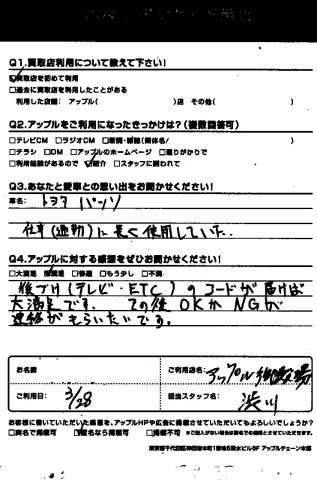 Q1.買取店利用について教えて下さい!
☑買取店を初めて利用
□過去に買取店を利用したことがある
利用した店舗: アップル( )店 その他( )
Q2.アップルをご利用になったきっかけは?(複数回答可)
□テレビCM □ラジオCM □新聞・雑誌(媒体名/ )
□チラシ □DM □アップルのホームページ □通りがかりで
□利用経験があるので ☑紹介 □スタッフに誘われて
Q3.あなたと愛車との思い出をお聞かせください!
車名: トヨタ パッソ
仕事(通勤)に長く使用していた。
Q4.アップルに対する感想をぜひお聞かせください!
□大満足 ☑満足 □普通 □もう少し □不満
後づけ(テレビ・ETC)のコードが届けば
大満足です。その後OKかNGか
連絡がもらいたいです。
お名前
ご利用店名: アップル
ご利用日: 3/28
担当スタッフ名: 渋川
お客様に書いていただいた感想を、アップルHPや広告に掲載させていただいてもよろしいでしょうか?
□実名で掲載可 ☑匿名なら掲載可 □掲載不可 ※ご記入がない場合は匿名での掲載とさせていただきます。
アップルチェーン本部